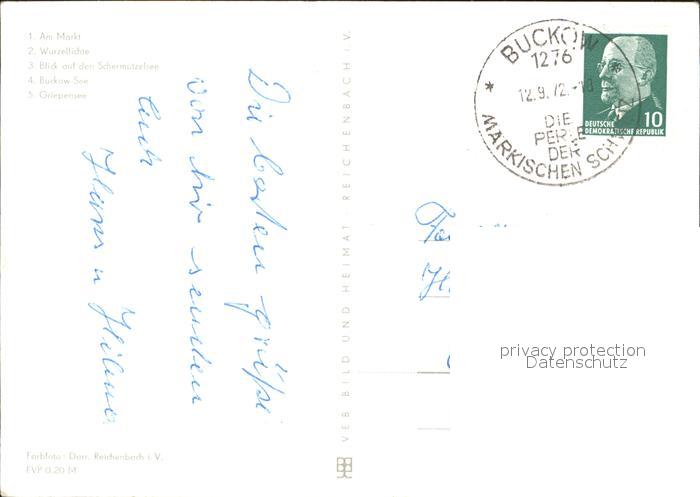 1. Am Markt
2. Wurzelfichte
3. Blick auf den Schermützelsee
4. Buckow-See
5. Griepensee
Die besten Grüße
von hir senden
Euch
Hans u Hilma
VEB BILD UND HEIMAT · REICHENBACH i. V.
Farbfoto: Darr, Reichenbach i. V.
EVP 0,20 M
BUCKOW
1276
12.9.72.-18
DIE
PERLE
DER
MÄRKISCHEN SCHWEIZ
10
DEUTSCHE
DEMOKRATISCHE REPUBLIK
privacy protection
Datenschutz